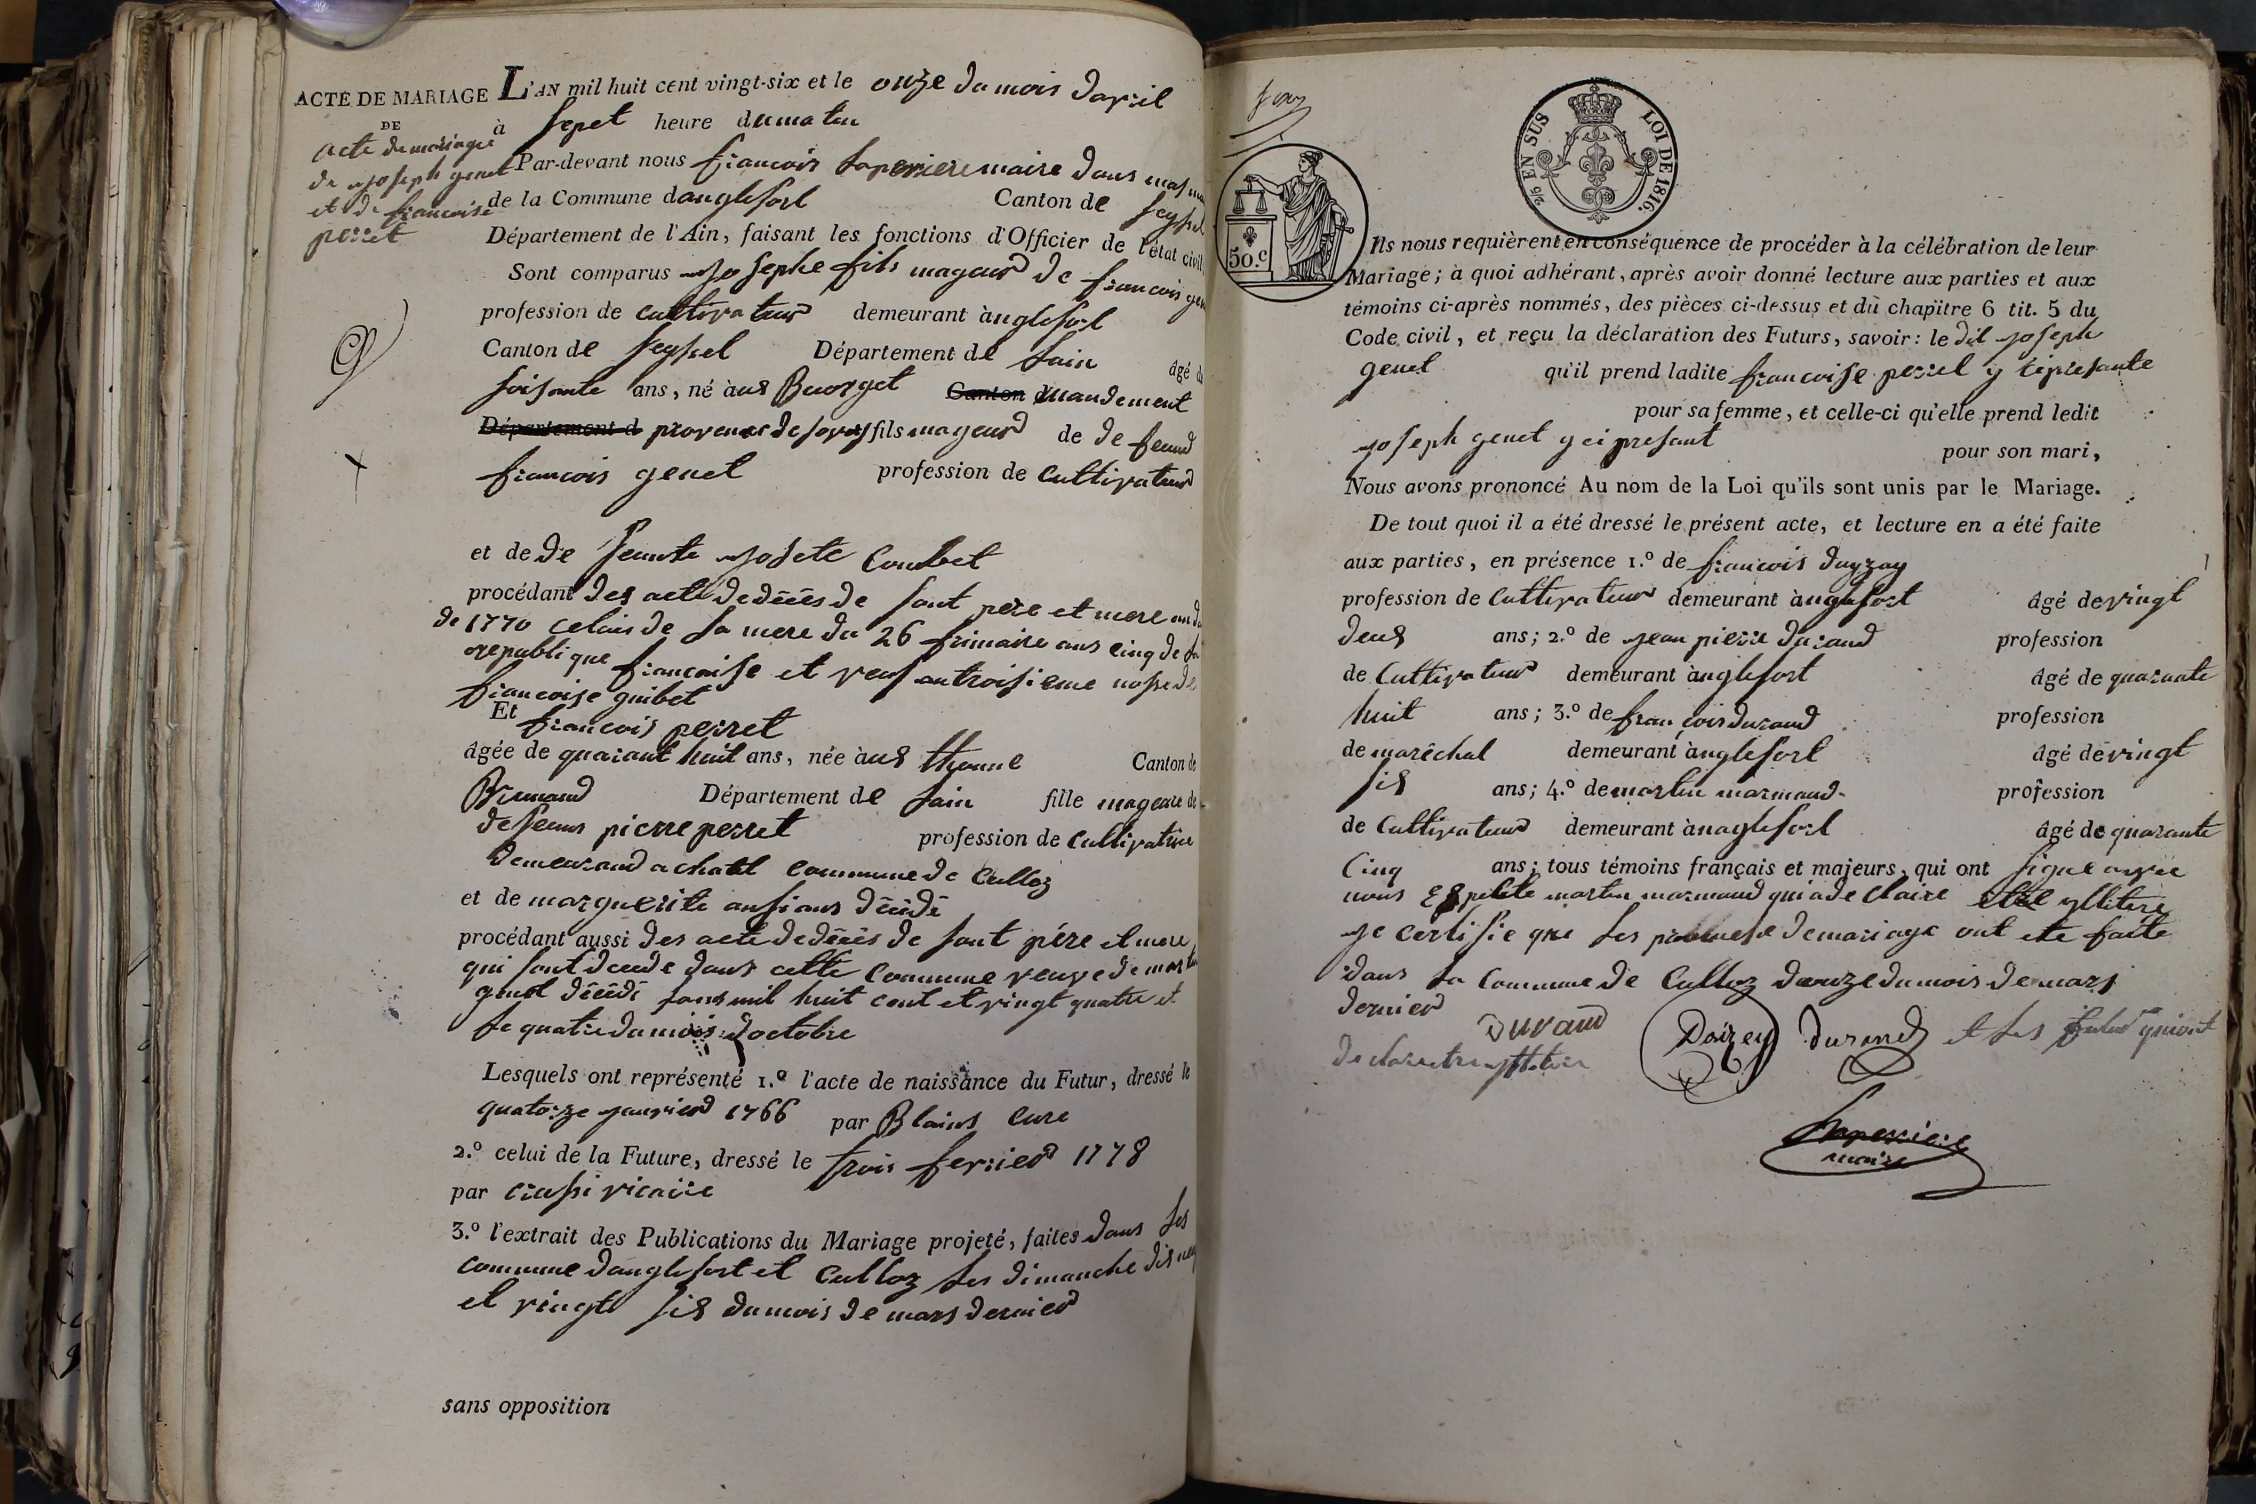 ACTE DE MARIAGE
DE
acte de mariage
de joseph genet
et de francoise
perret
L'AN mil huit cent vingt-six et le onze du mois davril
à sepet heure du matin
Par-devant nous francois Laperriere maire dans
de la Commune danglefort Canton de seyssel
Département de l'Ain, faisant les fonctions d'Officier de l'état civil
Sont comparus josephe fils mageur de francois
profession de cultivateur demeurant à anglefort
Canton de seyssel Département de Lain âgé de
soisante ans, né à aus Bourget Canton d mandement
Département d provence de fils mageur de de feeu
francois genet profession de cultivateur
et de de feeue josete Coubet
procédant des acte de décès de sont père et mere
de 1770 celui de sa mere du 26 frimaire ans cinq de la
republique francaise et veuf an troisieme nosse de
francoise guibet
Et francois perret
âgée de quarant huit ans, née à aus thonne Canton de
Département de Lain fille mageure de
de feeus pierre perret profession de cultivatrice
demeurand a chatel commune de Culloz
et de marguerite ansians décédé
procédant aussi des acte de décès de sont père et mere
qui sont décédé dans cette commune veuve de
genet décédé Lans mil huit cent et vingt quatre et
Le quatre du mois doctobre
Lesquels ont représenté 1.º l'acte de naissance du Futur, dressé le
quatorze janvier 1766 par Blains cure
2.º celui de la Future, dressé le trois fevrier 1778
par vicaire
3.º l'extrait des Publications du Mariage projeté, faites dans Les
commune danglefort et Culloz Les dimanche
et vingt sis du mois de mars dernier
sans opposition
2/6 EN SUS LOI DE 1816.
50.c
Ils nous requièrent en conséquence de procéder à la célébration de leur
Mariage; à quoi adhérant, après avoir donné lecture aux parties et aux
témoins ci-après nommés, des pièces ci-dessus et du chapitre 6 tit. 5 du
Code civil, et reçu la déclaration des Futurs, savoir: le dit joseph
genet qu'il prend ladite francoise perret y ci presante
pour sa femme, et celle-ci qu'elle prend ledit
joseph genet y ci presant pour son mari,
Nous avons prononcé Au nom de la Loi qu'ils sont unis par le Mariage.
De tout quoi il a été dressé le présent acte, et lecture en a été faite
aux parties, en présence 1.º de francois
profession de cultivateur demeurant à anglefort âgé de vingt
deus ans; 2.º de jean pierre durand profession
de cultivateur demeurant à anglefort âgé de quarante
huit ans; 3.º de francois durand profession
de maréchal demeurant à anglefort âgé de vingt
sis ans; 4.º de martin marmand profession
de cultivateur demeurant à anaglefort âgé de quarante
cinq ans; tous témoins français et majeurs, qui ont signe avec
nous martin marmand qui a de claire yllitere
je certifie que Les de mariage ont ete faite
dans La commune de Culloz douze du mois de mars
dernier
DURAND Durand et Les qui ont
Laperriere
maire